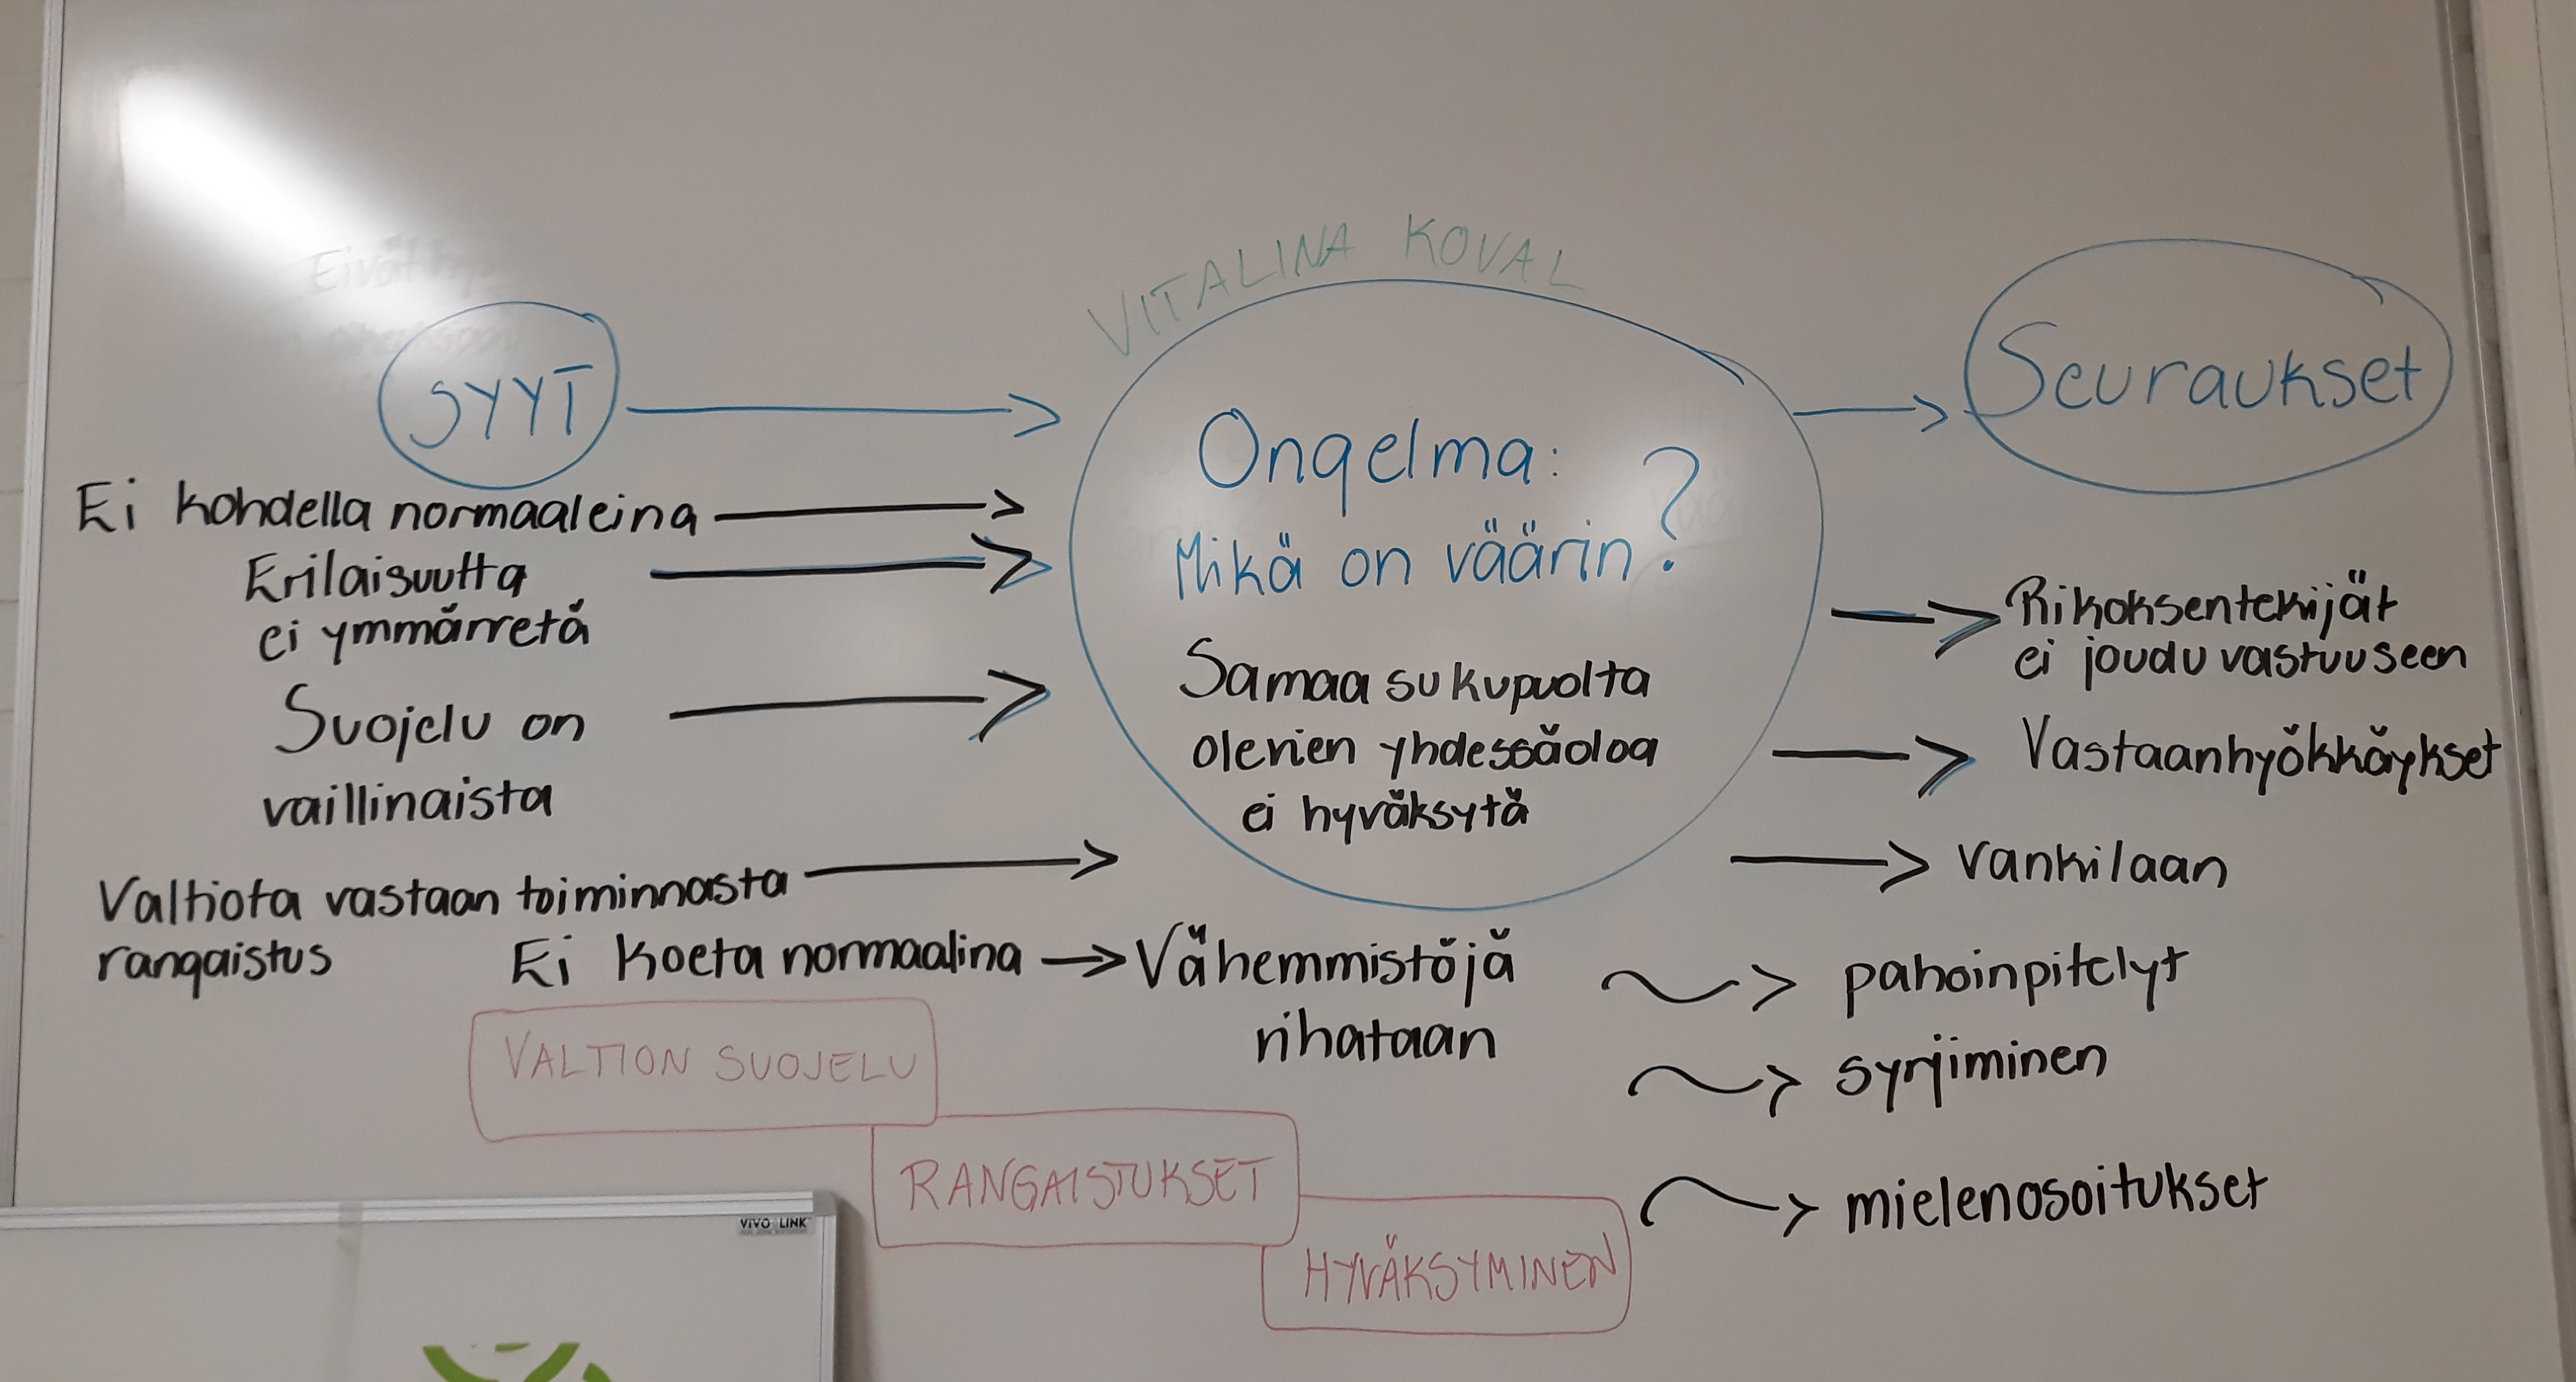 VITALINA KOVAL
SYYT
Ei kohdella normaaleina
Erilaisuutta
ei ymmärretä
Suojelu on
vaillinaista
Valtiota vastaan toiminnasta
rangaistus
Ei koeta normaalina
Ongelma:
Mikä on väärin?
Samaa sukupuolta
olevien yhdessäoloa
ei hyväksytä
Vähemmistöjä
vihataan
Seuraukset
Rikoksentekijät
ei joudu vastuuseen
Vastaanhyökkäykset
vankilaan
pahoinpitelyt
syrjiminen
mielenosoitukset
VALTION SUOJELU
RANGAISTUKSET
HYVÄKSYMINEN
VIVO LINK